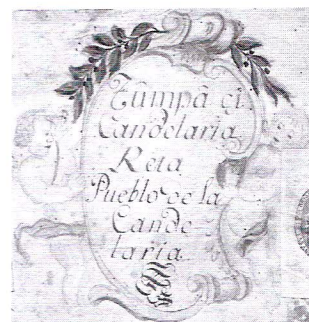 Tumpâ çi
Candelaria
Reta
Pueblo de la
Cande
laria